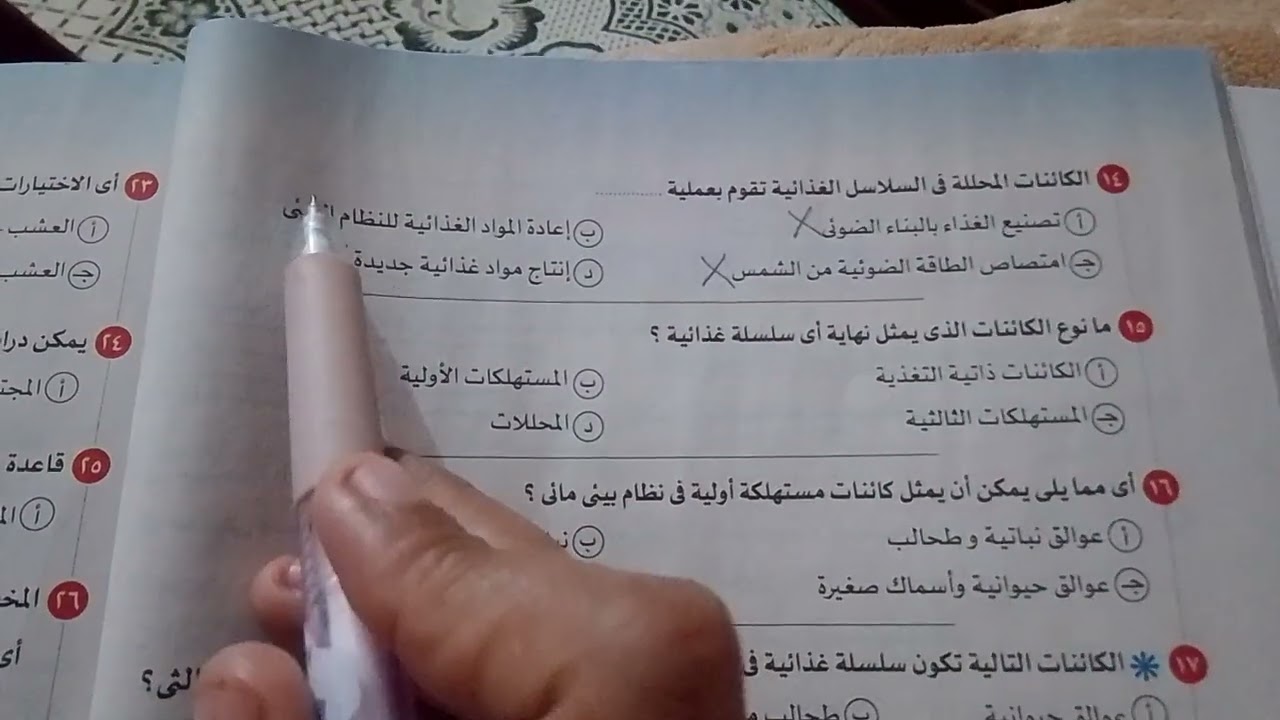 ١٤ الكائنات المحللة فى السلاسل الغذائية تقوم بعملية ............
أ تصنيع الغذاء بالبناء الضوئى
ب إعادة المواد الغذائية للنظام
ج امتصاص الطاقة الضوئية من الشمس
د إنتاج مواد غذائية جديدة
١٥ ما نوع الكائنات الذى يمثل نهاية أى سلسلة غذائية ؟
أ الكائنات ذاتية التغذية
ب المستهلكات الأولية
ج المستهلكات الثالثية
د المحللات
١٦ أى مما يلى يمكن أن يمثل كائنات مستهلكة أولية فى نظام بيئى مائى ؟
أ عوالق نباتية وطحالب
ب
ج عوالق حيوانية وأسماك صغيرة
١٧ الكائنات التالية تكون سلسلة غذائية
أ عوالق حيوانية
ب طحالب
٢٣ أى الاختيارات
أ العشب
ج العشب
٢٤ يمكن
أ
٢٥ قاعدة
أ
٢٦
أى